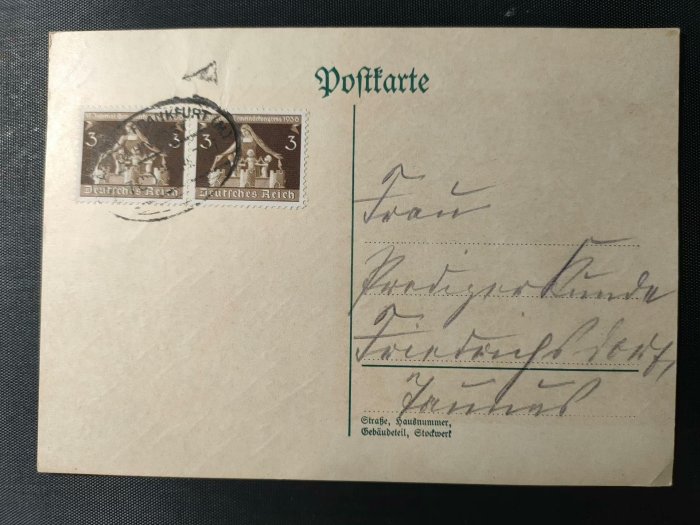 Postkarte
3 3
Deutsches Reich
3 3
Deutsches Reich
Frau
Prediger Kunde
Friedrichsdorf,
Taunus
Straße, Hausnummer,
Gebäudeteil, Stockwerk